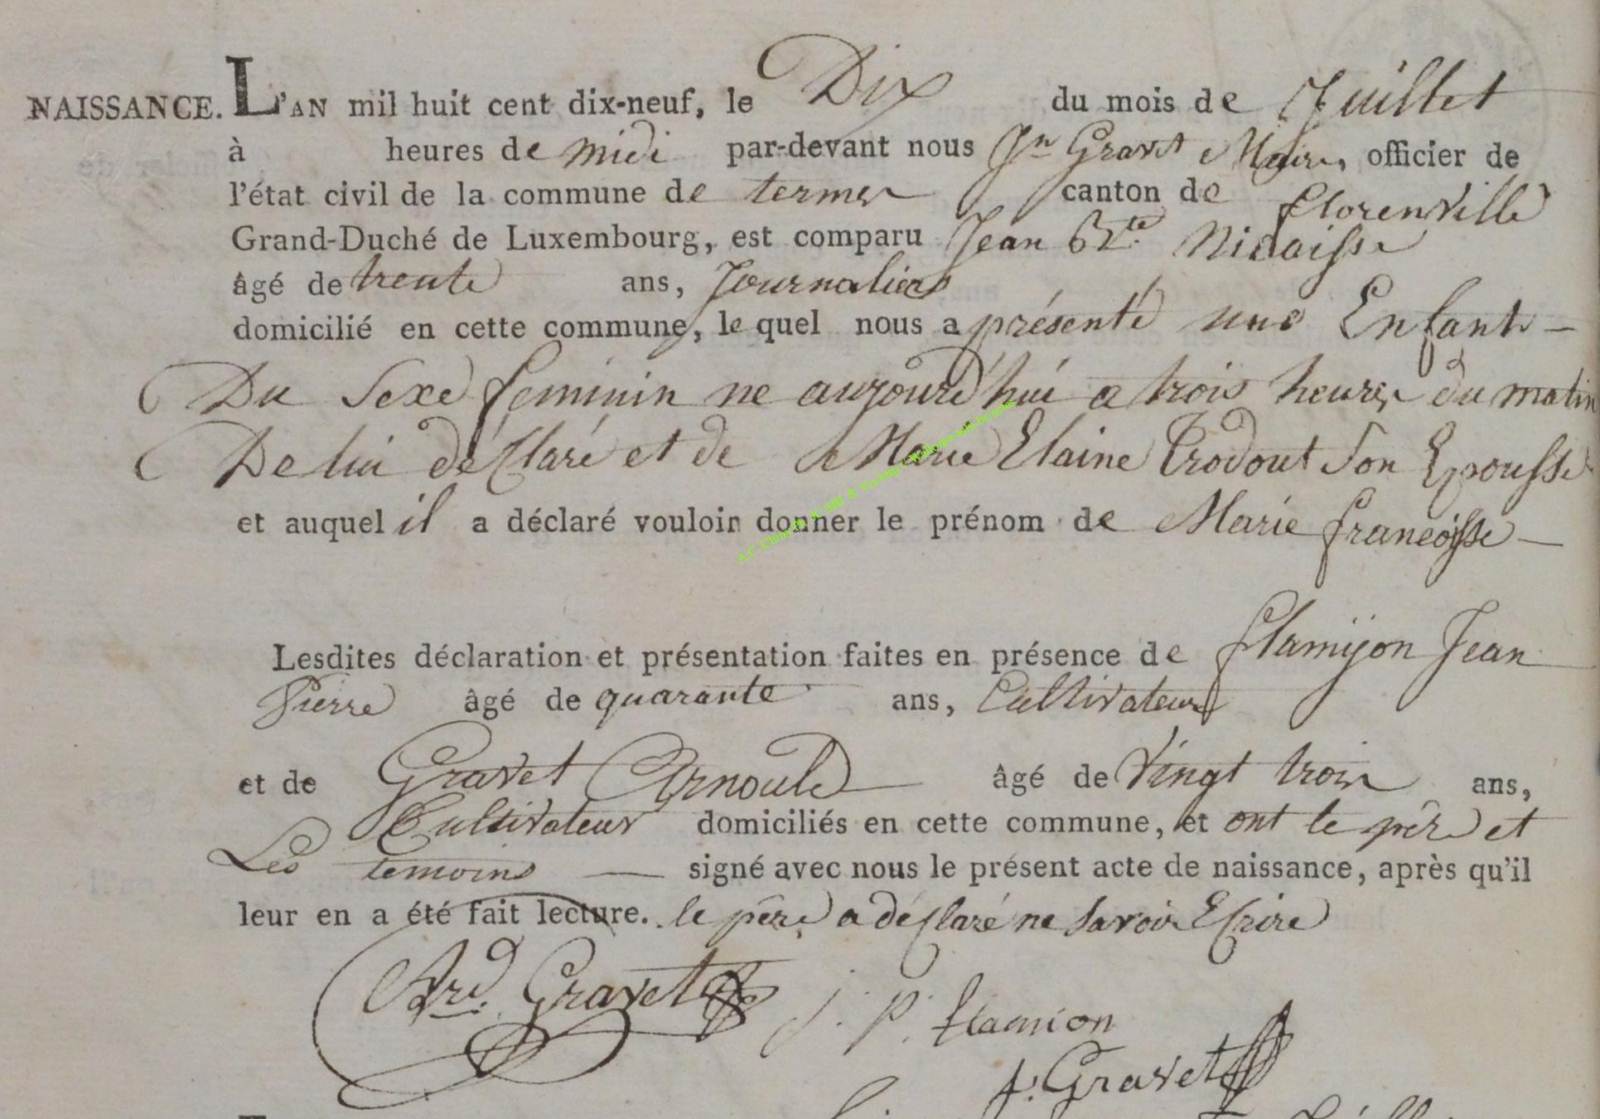 NAISSANCE. L'AN mil huit cent dix-neuf, le Dix du mois de Juillet
à heures de midi par-devant nous Jn Gravet Maire, officier de
l'état civil de la commune de termes canton de florenville
Grand-Duché de Luxembourg, est comparu Jean Bte Nicaisse
âgé de trente ans, Journalier
domicilié en cette commune, le quel nous a présenté une Enfant —
Du Sexe feminin ne aujourd'hui a trois heures du matin
De lui déclaré et de Marie Elaine Trodout Son Epousse
et auquel il a déclaré vouloir donner le prénom de Marie francoisse —
Lesdites déclaration et présentation faites en présence de flamijon Jean
Pierre âgé de quarante ans, Cultivateur
et de Gravet Arnould âgé de Vingt trois ans,
Cultivateur domiciliés en cette commune, et ont le père et
Les temoins — signé avec nous le présent acte de naissance, après qu'il
leur en a été fait lecture. le père a déclaré ne Savoir Ecrire
Ard. Gravet
j. p. flamion
j. Gravet